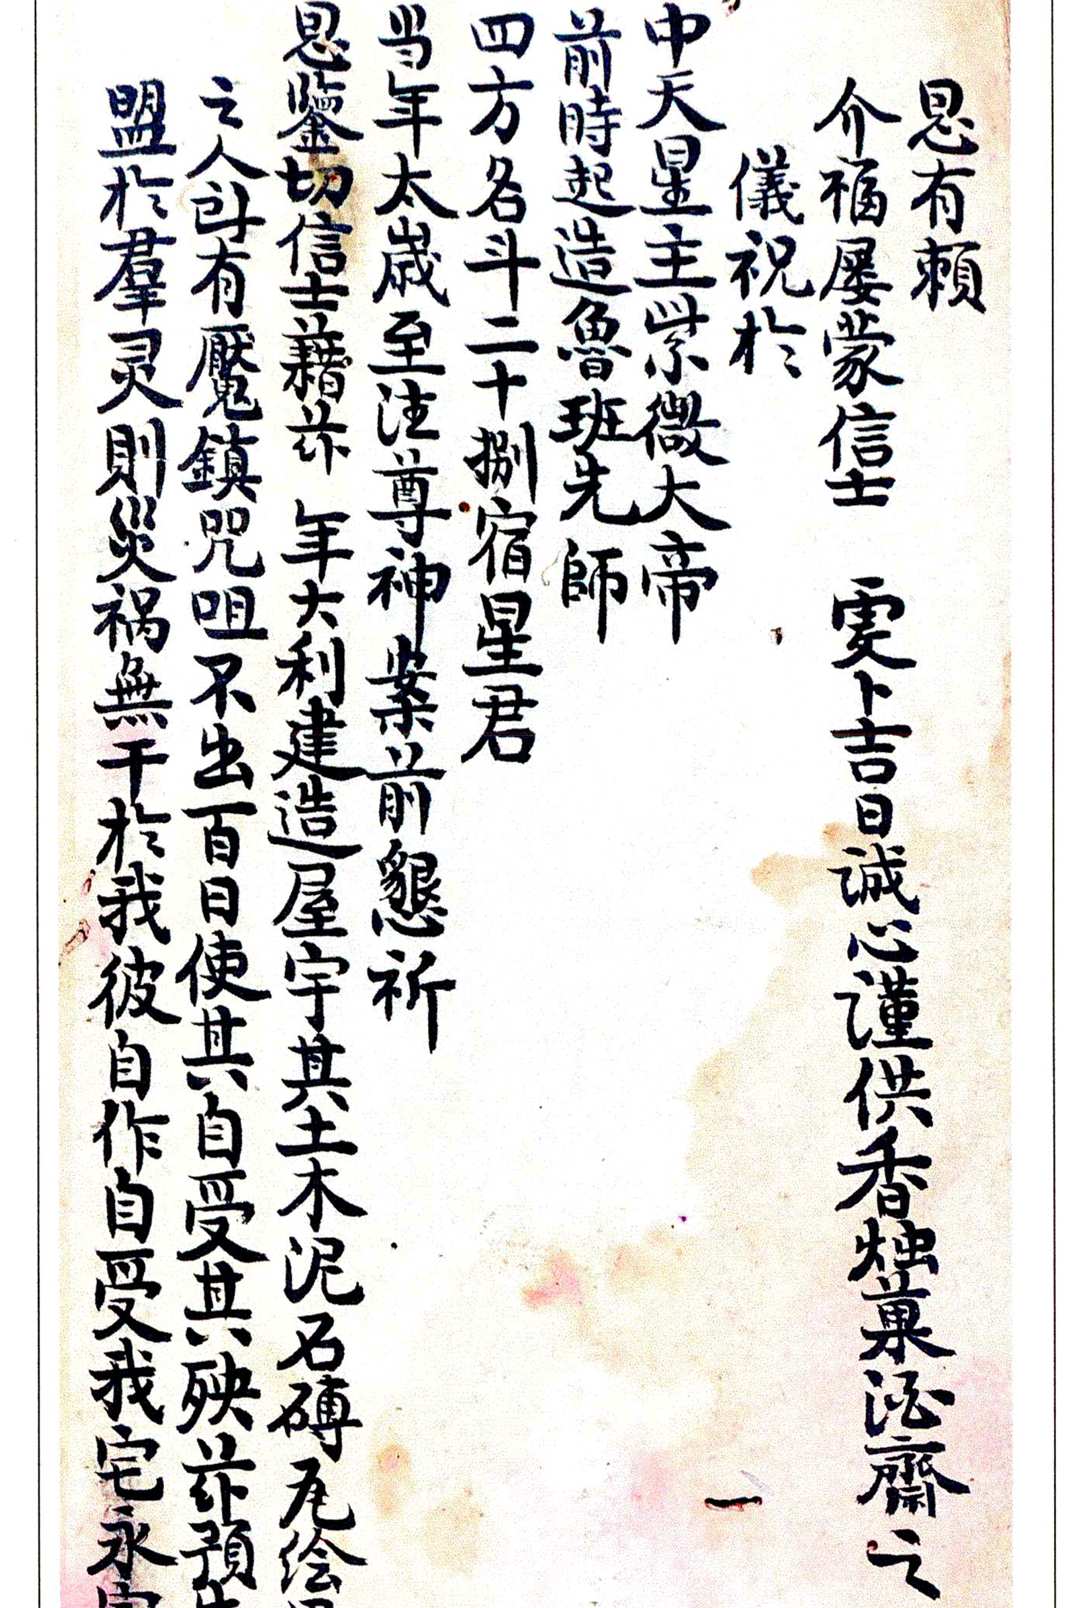 恩有賴
介福屡蒙信士 雯卜吉日誠心謹供香烛菓酒齋之
儀祝於
中天星主紫微大帝
前時起造魯班先師
四方各斗二十捌宿星君
当年太歲至注尊神案前懇祈
恩鑒切信士藉兹 年大利建造屋宇其土木泥石磚瓦绘
之人早有魘鎮咒咀不出百日使其自受其殃兹預
盟於羣灵則災祸無干於我彼自作自受我宅永
一